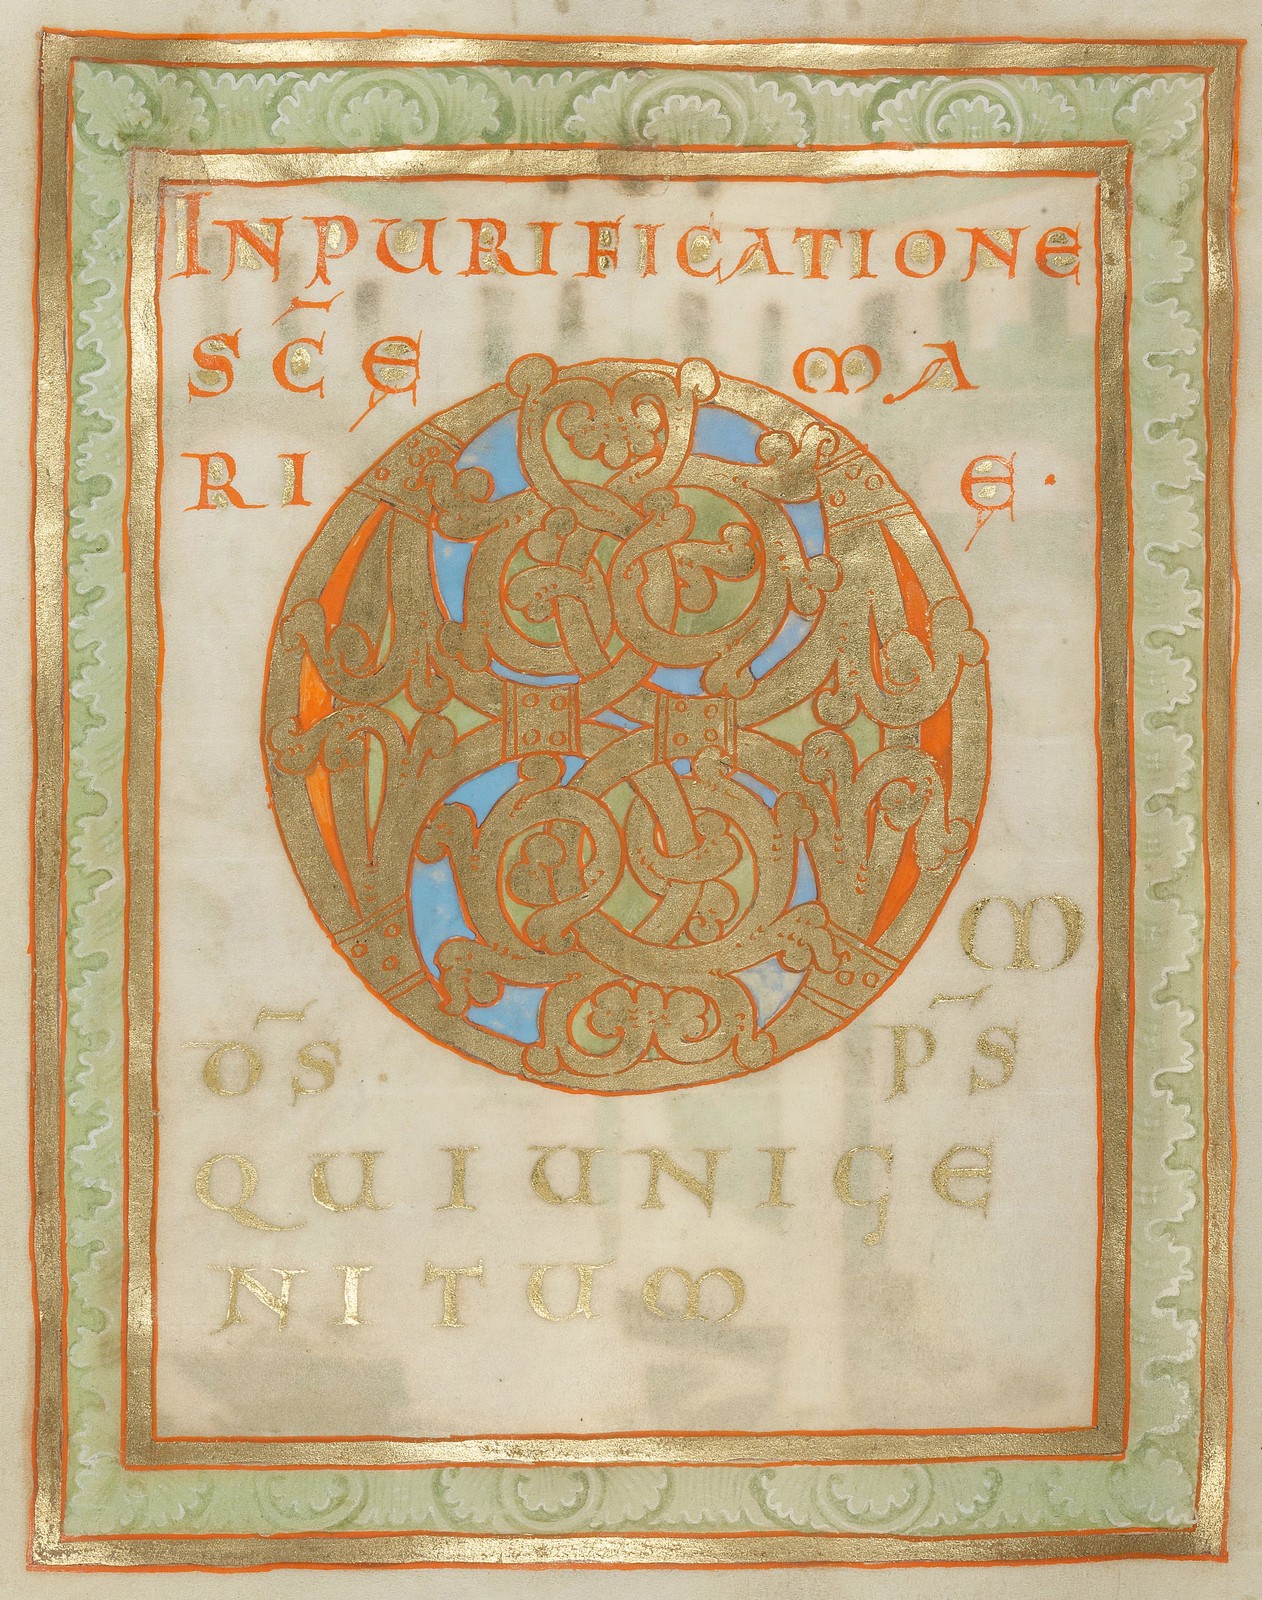 INPURIFICATIONE
SC̅E MA
RI E·
O M
D̅S P̅S
QUI UNIGE
NITUM